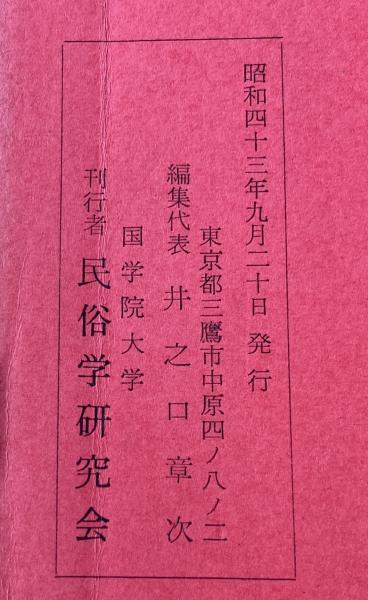 昭和四十三年九月二十日 発行
東京都三鷹市中原四ノ八ノ二
編集代表 井之口章次
国学院大学
刊行者 民俗学研究会